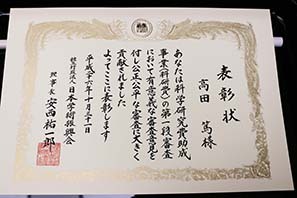 表彰状
高田 篤 様
あなたは科学研究費助成
事業(科研費)の第一段審査
において有意義な審査意見を
付し公正公平な審査に大きく
貢献されました
よってここに表彰します
平成二十六年十月三十一日
独立行政法人 日本学術振興会
理事長 安西祐一郎